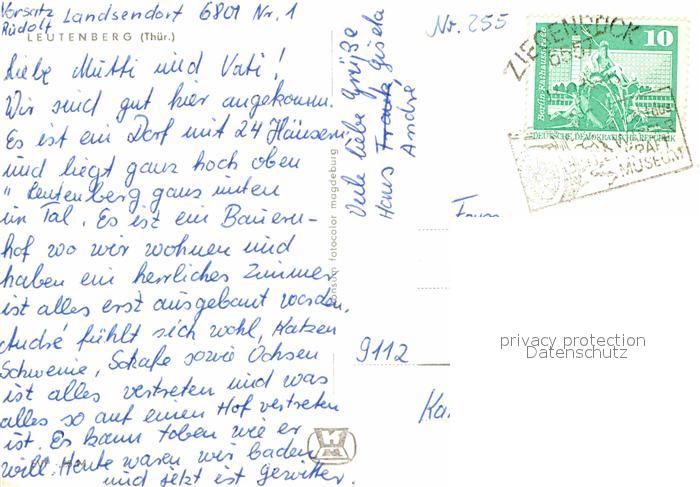 Vorsatz Landsendorf 6801 Nr. 1
Rudolf
LEUTENBERG (Thür.)
Liebe Mutti und Vati!
Wir sind gut hier angekomm.
Es ist ein Dorf mit 24 Häusern
und liegt ganz hoch oben
" Leutenberg ganz unten
im Tal. Es ist ein Bauern-
hof wo wir wohnen und
haben ein herrliches Zimmer
ist alles erst ausgebaut worden.
André fühlt sich wohl, Katzen
Schweine, Schafe sowie Ochsen
ist alles vertreten und was
alles so auf einen Hof vertreten
ist. Es kann toben wie er
will. Heute waren wir baden
und jetzt ist Gewitter.
Viele liebe Grüße
Hans Frank, Gisela
André
konsum fotocolor magdeburg
Nr. 255
ZIEGENRÜCK
6557
10
Berlin Rathausstraße
DEUTSCHE DEMOKRATISCHE REPUBLIK
MUSEUM
9112
Ka.
privacy protection
Datenschutz